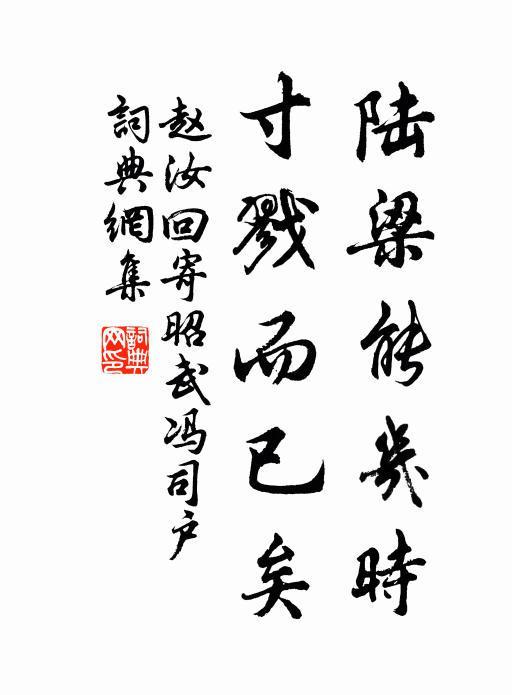 陆梁能幾時
寸戮而已矣
赵汝回寄昭武冯司户
詞典網集
詞典網印